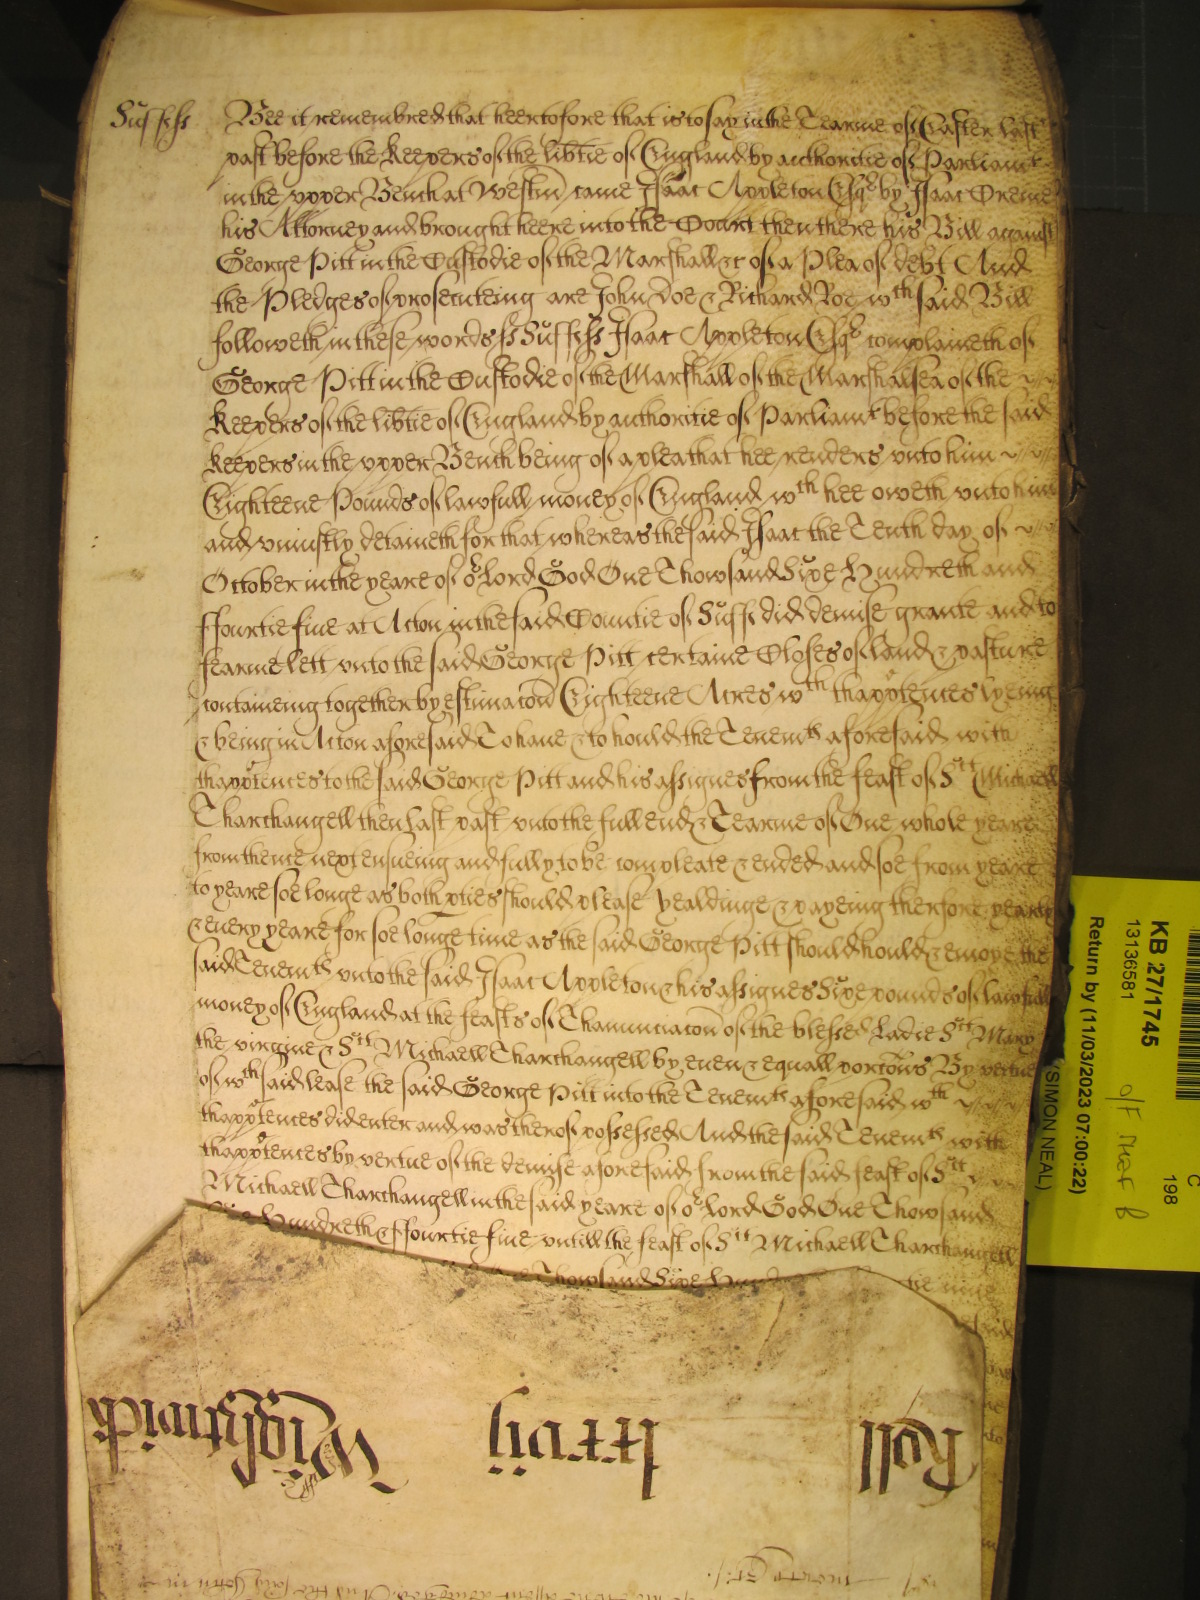 Suffsss Bee it remembred that heertofore that is to say in the Tearme of Easter last
past before the Keepers of the libtie of England by authoritie of Parliamt
in the vpper Bench at Westm came Isaac Appleton Esqr by Isaac Greene
his Attorney and brought heere into the Court then there his Bill against
George Pitt in the Custodie of the Marshall &c of a Plea of debt And
the Pledges of prosecuteing are John Doe & Richard Roe wth said Bill
followeth in these words ss Suffss Isaac Appleton Esqr complaineth of
George Pitt in the Custodie of the Marshall of the Marshalsea of the
Keepers of the libtie of England by authoritie of Parliamt before the said
Keepers in the vpper Bench being of a plea that hee renders vnto him
Eighteene Pounds of lawfull money of England wth hee oweth vnto him
and viniustly detaineth for that whereas the said Isaac the Tenth day of
October in the yeare of or Lord God One Thowsand Sixe Hundreth and
ffourtie fiue at Acton in the said Countie of Suff did demise grante and to
fearme lett vnto the said George Pitt certaine Closes of land & pasture
containeing together by estimacon Eighteene Acres wth thapptences lyeing
& being in Acton aforesaid To haue & to hould the Tenemts aforesaid with
thapptences to the said George Pitt and his assignes from the feast of Snt Michaell
Tharchangell then last past vnto the full end & Tearme of One whole yeare
from thence next ensueing and fully to be compleate & ended and soe from yeare
to yeare soe longe as both pties should please Yealdinge & payeing therfore yearely
& euery yeare for soe longe time as the said George Pitt should hould & enioye the
said Tenemts vnto the said Isaac Appleton & his assignes Sixe pounds of lawfull
money of England at the feasts of Thannunciacon of the blessed Ladie Snt Mary
the virgine & Snt Michaell Tharchangell by euen & equall porcons By vertue
of wth said lease the said George Pitt into the Tenemts aforesaid wth
thapptences did enter and was therof possessed And the said Tenemts with
thapptences by vertue of the demise aforesaid from the said feast of Snt
Michaell Tharchangell in the said yeare of or Lord God One Thowsand
Sixe Hundreth & ffourtie fiue vntill the feast of Snt Michaell Tharchangell
Thowsand Sixe
Roll lxxvij Wightwich
KB 27/1745
13136581
Return by (11/03/2023 07:00:22)
(SIMON NEAL)
C
198